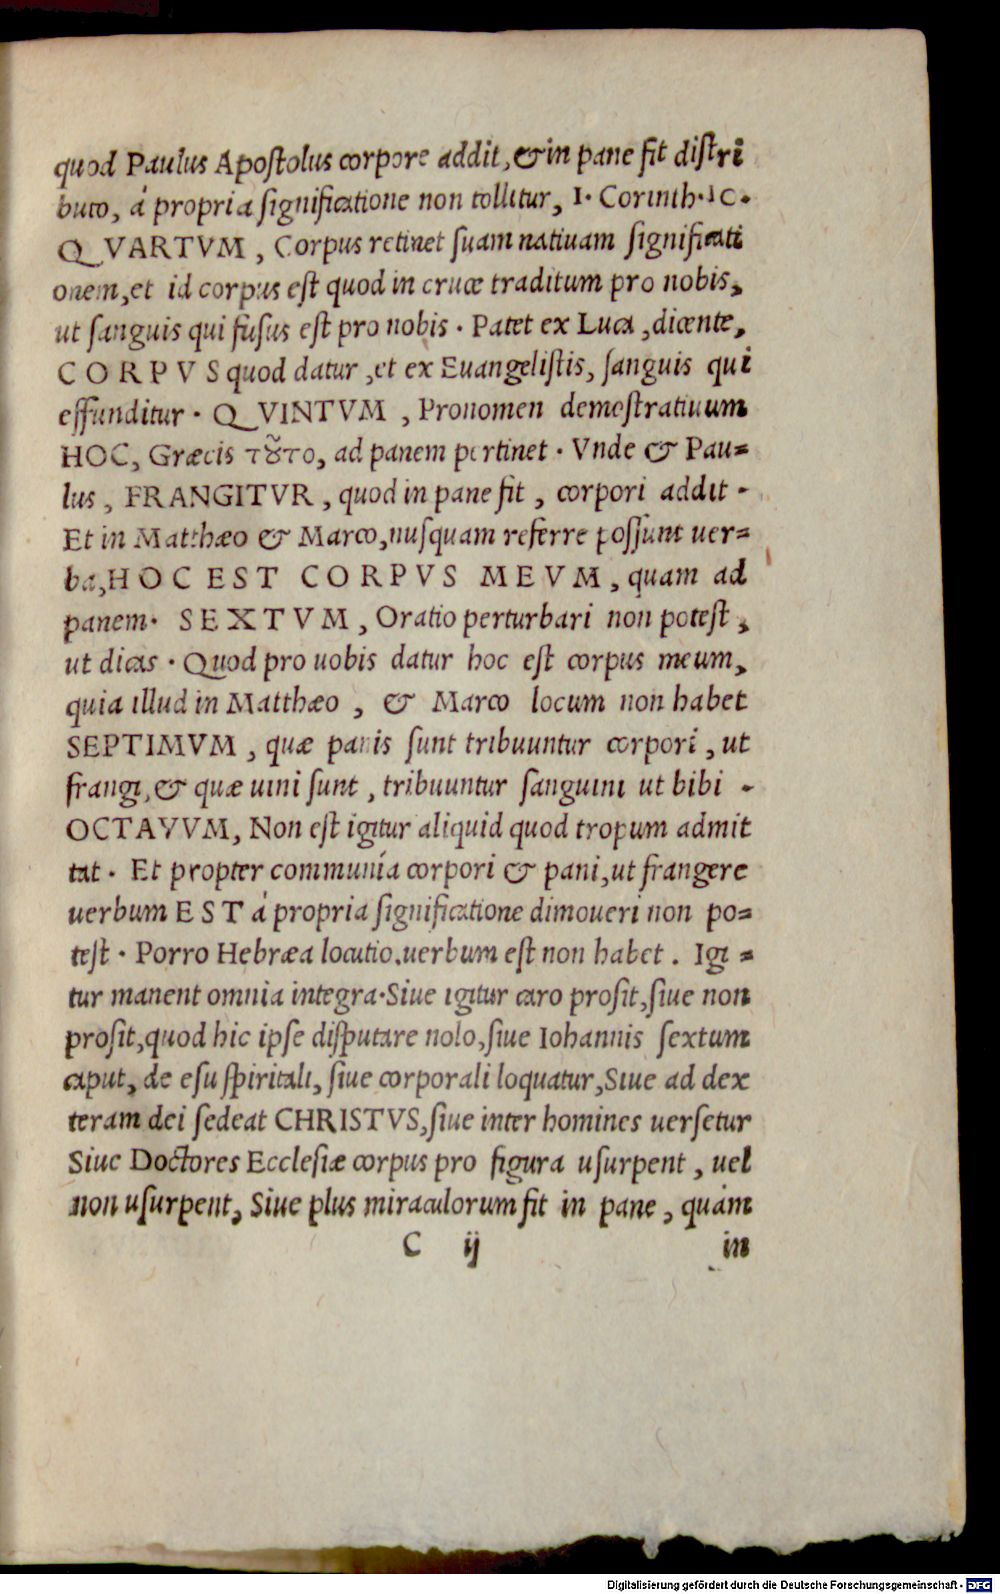 quod Paulus Apostolus corpore addit, & in pane fit distri
buto, á propria significatione non tollitur, I. Corinth. 10.
QVARTVM, Corpus retinet suam natiuam significati
onem, et id corpus est quod in cruce traditum pro nobis,
ut sanguis qui fusus est pro nobis. Patet ex Luca, dicente,
CORPVS quod datur, et ex Euangelistis, sanguis qui
effunditur. QVINTVM, Pronomen demostratiuum
HOC, Græcis τȣ̃το, ad panem pertinet. Vnde & Pau=
lus, FRANGITVR, quod in pane fit, corpori addit.
Et in Matthæo & Marco, nusquam referre possunt uer=
ba, HOC EST CORPVS MEVM, quam ad
panem. SEXTVM, Oratio perturbari non potest,
ut dicas. Quod pro uobis datur hoc est corpus meum,
quia illud in Matthæo, & Marco locum non habet
SEPTIMVM, quæ panis sunt tribuuntur corpori, ut
frangi, & quæ uini sunt, tribuuntur sanguini ut bibi.
OCTAVVM, Non est igitur aliquid quod tropum admit
tat. Et propter communía corpori & pani, ut frangere
uerbum EST á propria significatione dimoueri non po=
test. Porro Hebræa locutio, uerbum est non habet. Igi=
tur manent omnia integra. Siue igitur caro prosit, siue non
prosit, quod hic ipse disputare nolo, siue Iohannis sextum
caput, de esu spiritali, siue corporali loquatur, Siue ad dex
teram dei sedeat CHRISTVS, siue inter homines uersetur
Siue Doctores Ecclesiæ corpus pro figura usurpent, uel
non usurpent, Siue plus miraculorum fit in pane, quám
C ij in
Digitalisierung gefördert durch die Deutsche Forschungsgemeinschaft - DFG